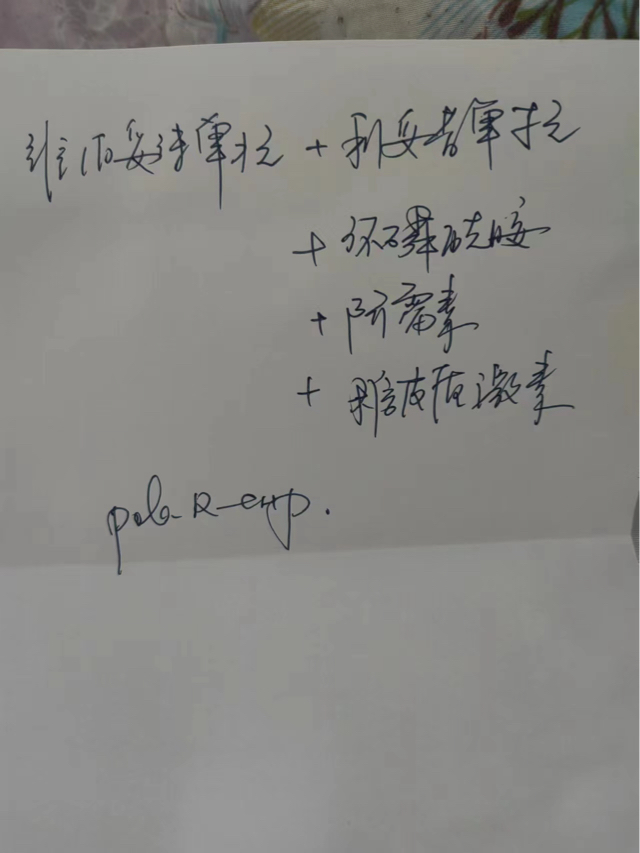 维泊妥珠单抗 + 利妥昔单抗
+ 环磷酰胺
+ 阿霉素
+ 糖皮质激素
pola-R-CHP.